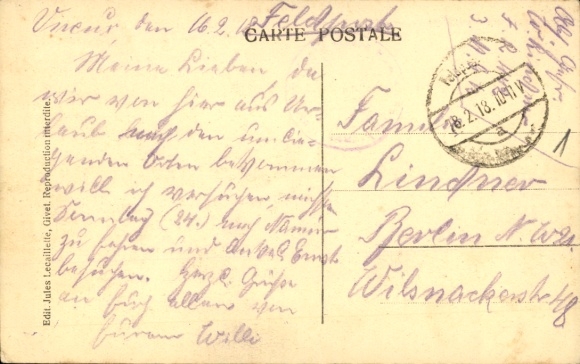 Vneux, den 16.2.18
Feldpost
CARTE POSTALE
Meine Lieben, da
wir von hier aus Ur-
laub nach den umlie-
genden Orten bekommen
will ich versuchen, nächsten
Sonntag (24.) nach Namur
zu fahren und Onkel Ernst
besuchen. Herzl. Grüße
an Euch allen von
Eurem Willi
18.2.18. 10-11 V.
a
Familie
Lindner
Berlin N.W. 21.
Wilsnackerstr. 48
1
Edit. Jules Lecaillette, Givet. Reproduction interdite.